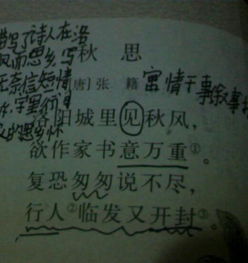 描写了诗人在洛
而思乡,写
信短情
字里行
的思乡怀
秋 思
[唐]张 籍
寓情于事
阳城里见秋风,
欲作家书意万重①。
复恐匆匆说不尽,
行人②临发又开封③。